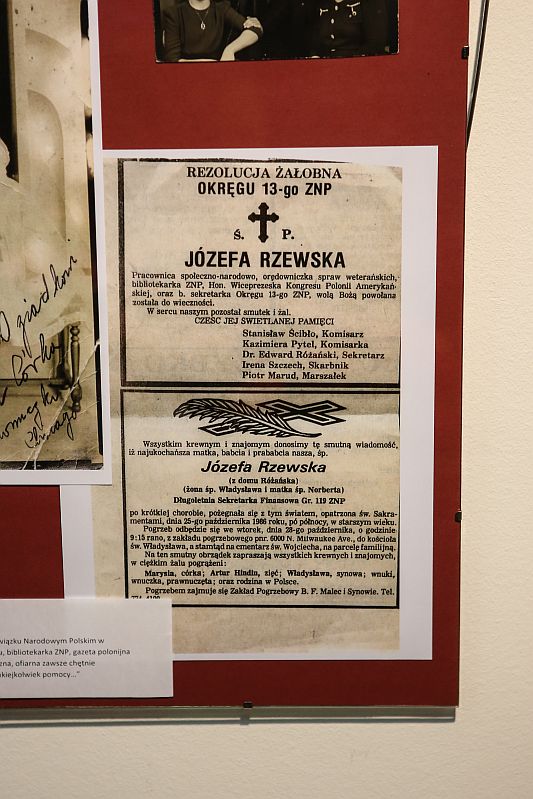 REZOLUCJA ŻAŁOBNA
OKRĘGU 13-go ZNP
Ś. P.
JÓZEFA RZEWSKA
Pracownica społeczno-narodowo, orędowniczka spraw weterańskich,
bibliotekarka ZNP, Hon. Wiceprezeska Kongresu Polonii Amerykań-
skiej, oraz b. sekretarka Okręgu 13-go ZNP, wolą Bożą powołana
została do wieczności.
W sercu naszym pozostał smutek i żal.
CZEŚĆ JEJ ŚWIETLANEJ PAMIĘCI
Stanisław Ścibło, Komisarz
Kazimiera Pytel, Komisarka
Dr. Edward Różański, Sekretarz
Irena Szczech, Skarbnik
Piotr Marud, Marszałek
Wszystkim krewnym i znajomym donosimy tę smutną wiadomość,
iż najukochańsza matka, babcia i prababcia nasza, śp.
Józefa Rzewska
(z domu Różańska)
(żona śp. Władysława i matka śp. Norberta)
Długoletnia Sekretarka Finansowa Gr. 119 ZNP
po krótkiej chorobie, pożegnała się z tym światem, opatrzona św. Sakra-
mentami, dnia 25-go października 1986 roku, pó północy, w starszym wieku.
Pogrzeb odbędzie się we wtorek, dnia 28-go października, o godzinie
9:15 rano, z zakładu pogrzebowego pnr. 6000 N. Milwaukee Ave., do kościoła
św. Władysława, a stamtąd na cmentarz św. Wojciecha, na parcelę familijną.
Na ten smutny obrządek zapraszają wszystkich krewnych i znajomych,
w ciężkim żalu pogrążeni:
Marysia, córka; Artur Hindin, zięć; Władysława, synowa; wnuki,
wnuczka, prawnuczęta; oraz rodzina w Polsce.
Pogrzebem zajmuje się Zakład Pogrzebowy B. F. Malec i Synowie. Tel.
774-4100
wiązku Narodowym Polskim w
u, bibliotekarka ZNP, gazeta polonijna
zna, ofiarna zawsze chętnie
kiejkolwiek pomocy..."
Córka
Chicago